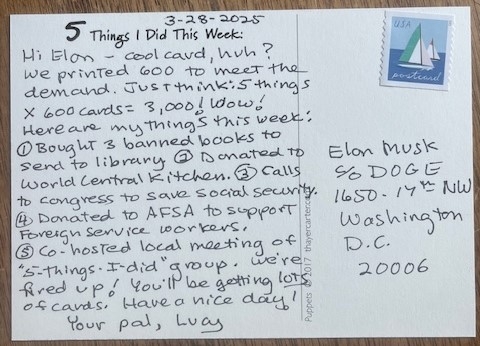 3-28-2025
5 Things I Did This Week:
Hi Elon - cool card, huh?
We printed 600 to meet the
demand. Just think: 5 things
x 600 cards = 3,000! Wow!
Here are my things this week:
① Bought 3 banned books to
send to library. ② Donated to
World Central Kitchen. ③ Calls
to congress to save social security.
④ Donated to AFSA to support
Foreign service workers.
⑤ Co-hosted local meeting of
"5-things-I-did" group. We're
fired up! You'll be getting lots
of cards. Have a nice day!
Your pal, Lucy
Puppets © 2017 thayercarter.com
USA
postcard
Elon Musk
c/o DOGE
1650-17th NW
Washington
D.C.
20006